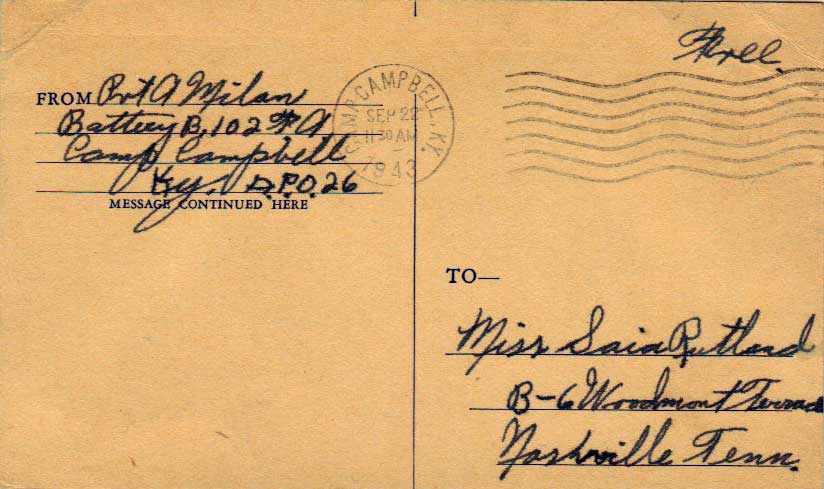 Free.
FROM Pvt A Milan
Battery B, 102 F.A.
Camp Campbell
Ky. A.P.O. 26
MESSAGE CONTINUED HERE
CAMP CAMPBELL, KY.
SEP 22
11 30 AM
1943
TO—
Miss Saia Rutland
B-6 Woodmont Terrace
Nashville Tenn.